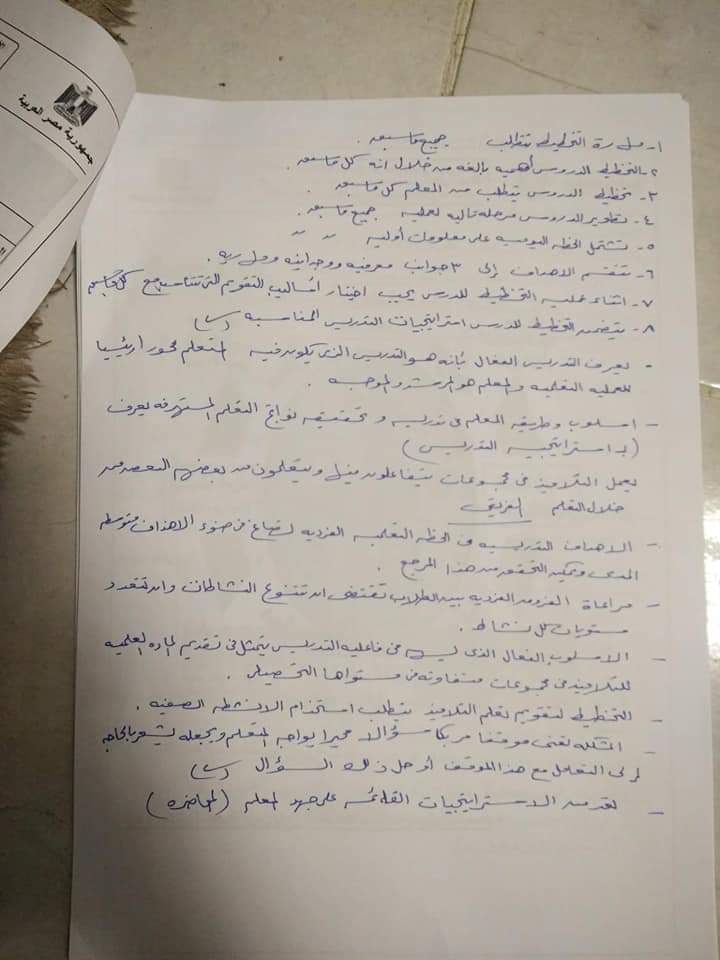 جمهورية مصر العربية
١- مهارة التخطيط تتطلب جميع ما سبق.
٢- التخطيط الدروس أهميه بالغه من خلال انه كل ما سبق.
٣- تخطيط الدروس يتطلب من المعلم كل ما سبق.
٤- تطوير الدروس مرحله تاليه لعمليه جميع ما سبق.
٥- تشتمل الخطه اليوميه على معلومات أوليه " "
٦- تنقسم الاهداف إلى ٣ جوانب معرفيه ووجدانيه ومهاريه.
٧- اثناء عمليه التخطيط للدرس يجب اختيار أساليب التقويم التى تتناسب مع كل ما سبق
٨- يتضمن التخطيط للدرس استراتيجيات التدريس المناسبه (√)
• يعرف التدريس الفعال بأنه هو التدريس الذى يكون فيه المتعلم محور أرئيسيا
للعمليه التعلميه والمعلم هو المرشد والموجه.
– اسلوب وطريقه المعلم فى تدريسه وتحقيقه نواتج التعلم المستهدفه يعرف
(بـ استراتيجيه التدريس)
يعمل التلاميذ فى مجموعات يتفاعلون فيها ويتعلمون من بعضهم البعض من
خلال التعلم الفريقى
– الاهداف التدريسيه فى الخطه التعلميه الفرديه تصاغ فى ضوء الاهداف متوسطه
المدى ويمكن التحقق من هذا المرجع.
– مراعاة الفروق الفرديه بين الطلاب تقتضى ان تتنوع النشاطات وان تتعدد
مستويات كل نشاط.
– الاسلوب الفعال الذى ليس فى فاعليه التدريس يتمثل فى تقديم الماده العلميه
للتلاميذ فى مجموعات متفاوته فى مستواها التحصيلى.
– التخطيط لتقويم تعلم التلاميذ يتطلب استخدام الانشطه الصفيه.
– المشكله تعنى موقفا مربكا سؤالا محيرا يواجه المتعلم ويجعله يشعر بالحاجه
إلى التعامل مع هذا الموقف أو حل ذلك السؤال (√)
– تعد من الاستراتيجيات القائمه على جهد المعلم (المحاضره)